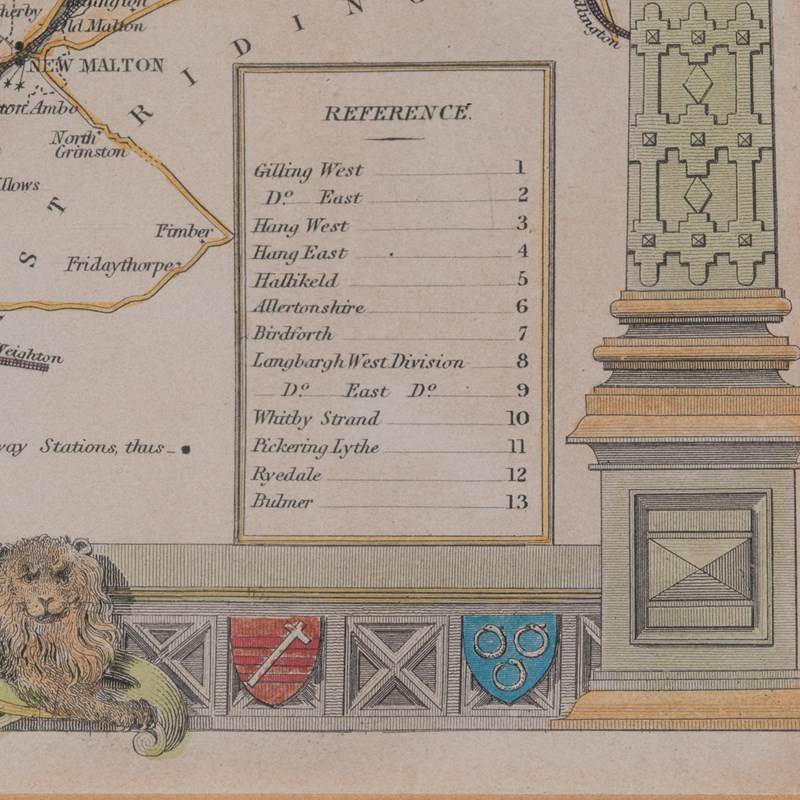 Old Malton
NEW MALTON
North
Grimston
RIDING
ST
Fimber
Fridaythorpe
Weighton
way Stations, thus
REFERENCE.
Gilling West 1
Do. East 2
Hang West 3
Hang East 4
Hallikeld 5
Allertonshire 6
Birdforth 7
Langbargh West Division 8
Do. East Do. 9
Whitby Strand 10
Pickering Lythe 11
Ryedale 12
Bulmer 13